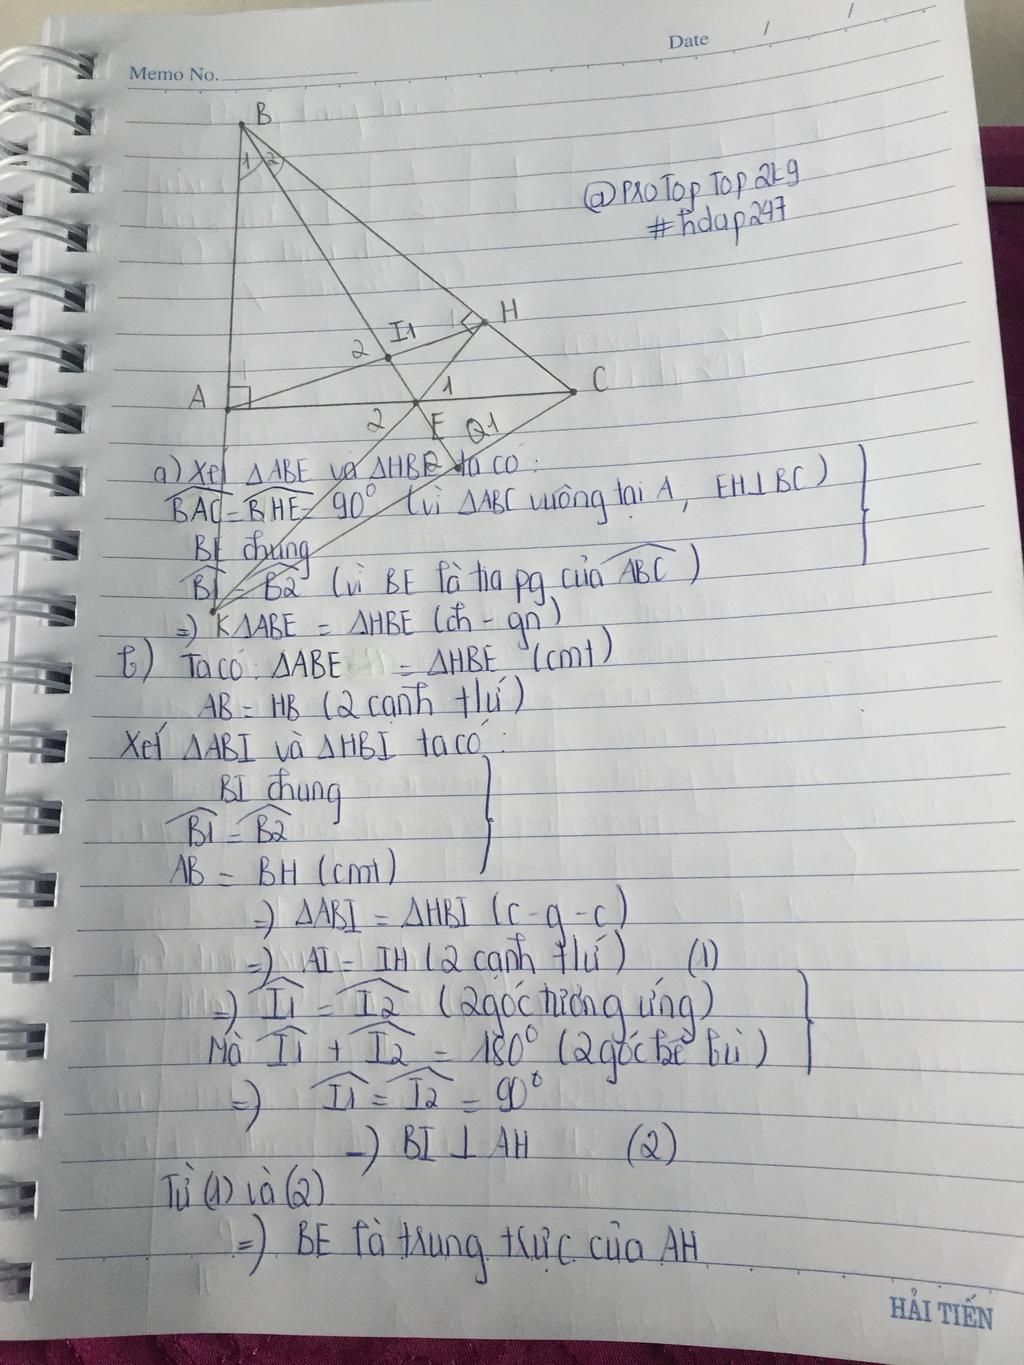 Memo No.
Date / /
B
1 2
@PROTopTop2k9
#hdap247
I1
H
2
A
1
C
2
E
Q1
a) Xét ΔABE và ΔHBE ta có:
BAC = BHE = 90° (vì ΔABC vuông tại A, EH⊥BC)
BE chung
B1 = B2 (vì BE là tia pg của ABC)
K
=) ΔABE = ΔHBE (ch - gn)
b) Ta có: ΔABE = ΔHBE (cmt)
AB = HB (2 cạnh tứ)
Xét ΔABI và ΔHBI ta có:
BI chung
B1 = B2
AB = BH (cmt)
=) ΔABI = ΔHBI (c-g-c)
=) AI = IH (2 cạnh tứ) (1)
=) I1 = I2 (2 góc tương ứng)
Mà I1 + I2 = 180° (2 góc kề bù)
=) I1 = I2 = 90°
=) BI ⊥ AH (2)
Từ (1) và (2)
=) BE là trung trực của AH
HẢI TIẾN